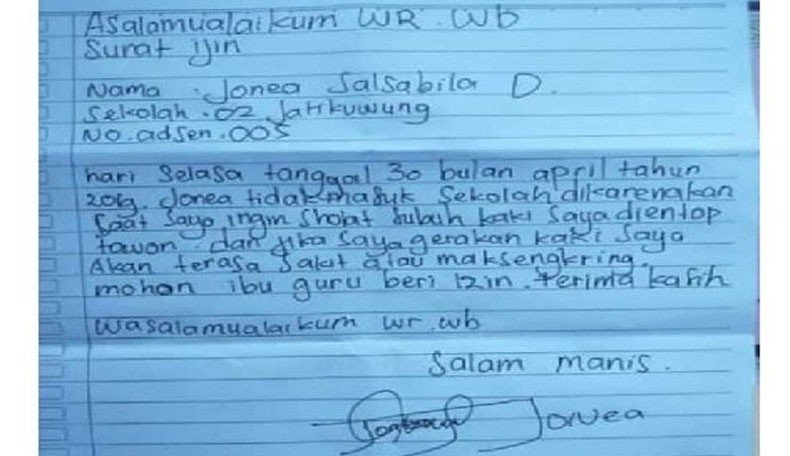 Asalamualaikum WR. Wb
Surat ijin
Nama : Jonea Salsabila D.
Sekolah . 02 Jatikuwung
No. adsen . 005
hari selasa tanggal 30 bulan april tahun
2019. Jonea tidak masuk sekolah dikarenakan
saat saya ingin sholat subuh kaki saya dientop
tawon. dan jika saya gerakan kaki saya
Akan terasa sakit atau maksengkring.
mohon ibu guru beri izin. terima kasih
Wasalamualaikum wr. wb
Salam manis.
Jonea